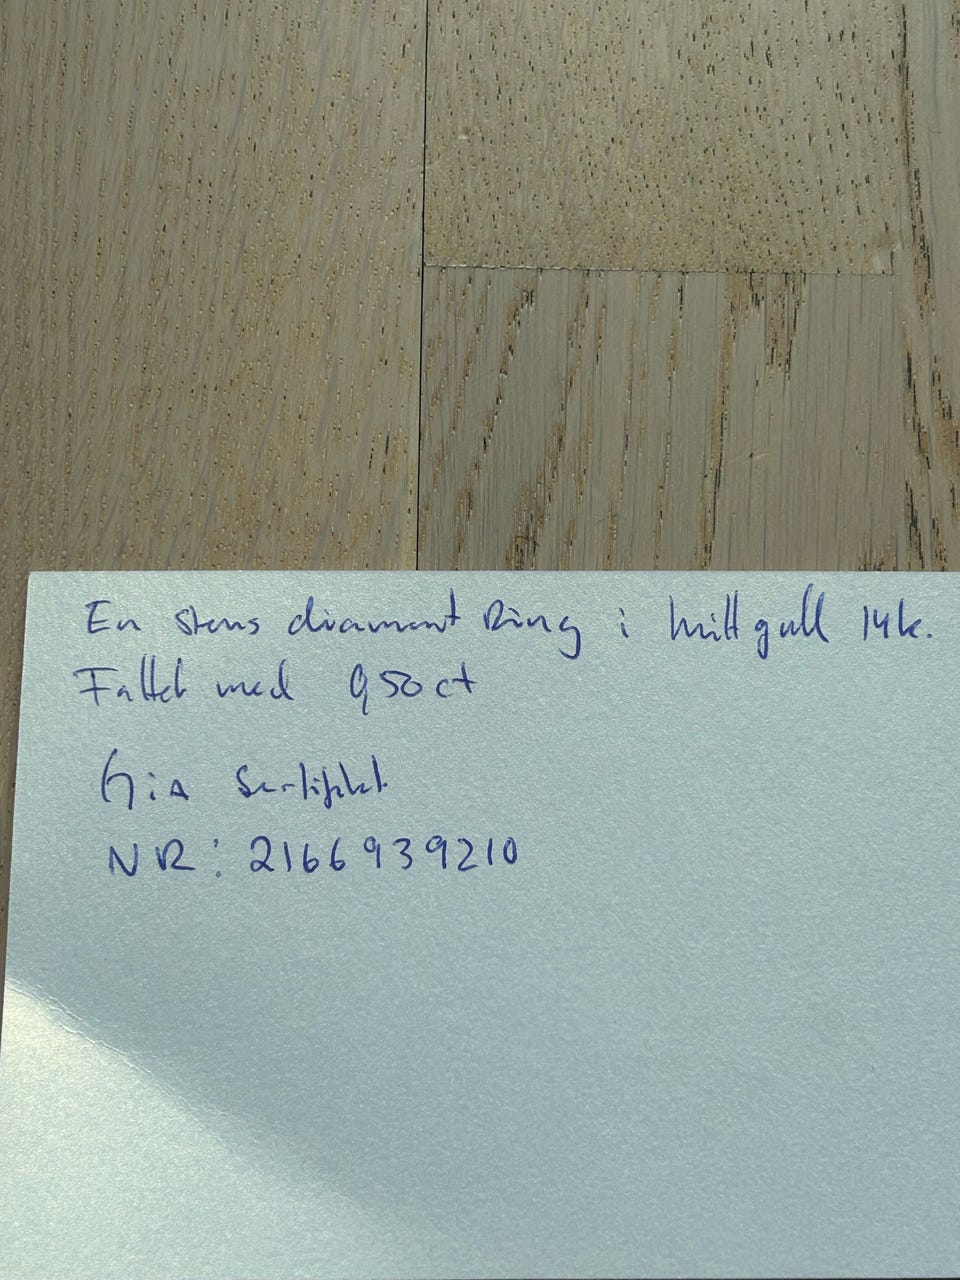 En stens diamant Ring i hvitt gull 14k.
Fattet med 0,50 ct
Gia Sertifikat
NR: 2166939210